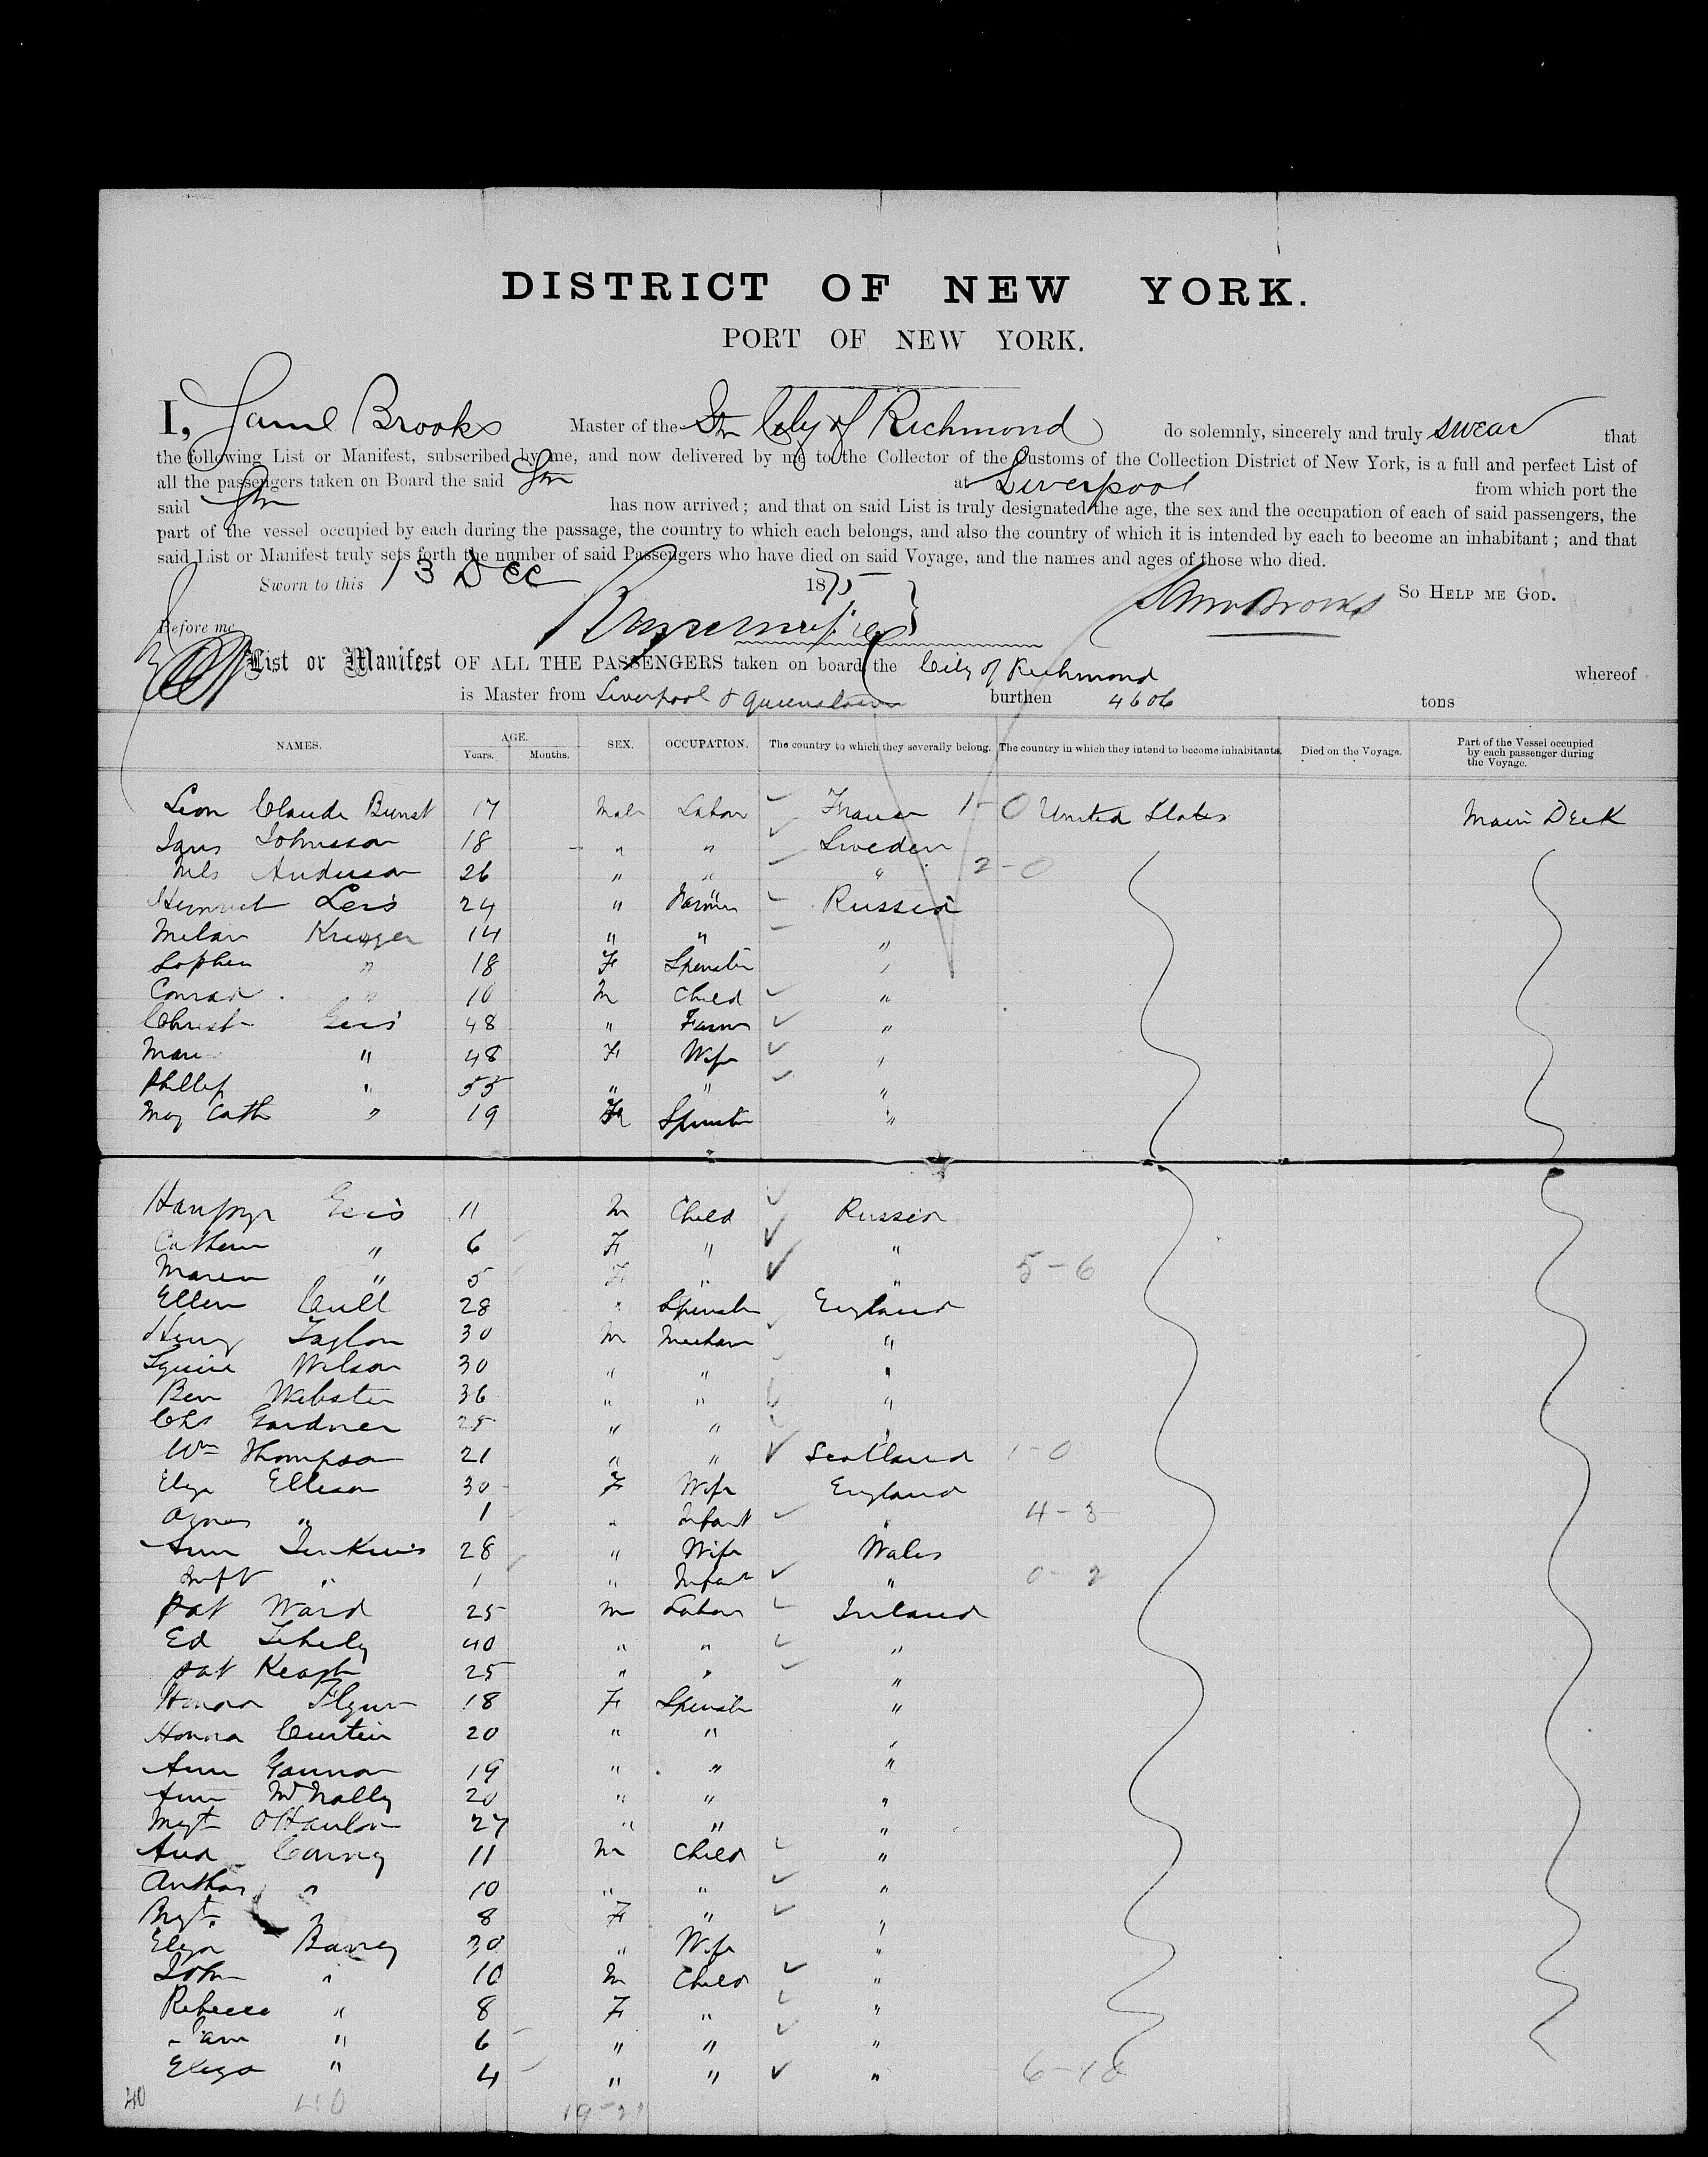 DISTRICT OF NEW YORK.
PORT OF NEW YORK.
I, Saml Brooks Master of the Str City of Richmond do solemnly, sincerely and truly swear that
the following List or Manifest, subscribed by me, and now delivered by me to the Collector of the Customs of the Collection District of New York, is a full and perfect List of
all the passengers taken on Board the said Str at Liverpool from which port the
said Str has now arrived; and that on said List is truly designated the age, the sex and the occupation of each of said passengers, the
part of the vessel occupied by each during the passage, the country to which each belongs, and also the country of which it is intended by each to become an inhabitant; and that
said List or Manifest truly sets forth the number of said Passengers who have died on said Voyage, and the names and ages of those who died.
Sworn to this 13 Dec 1875 So Help me God.
Before me
List or Manifest OF ALL THE PASSENGERS taken on board the City of Richmond whereof
is Master from Liverpool & Queenstown burthen 4606 tons
NAMES. AGE. Years. Months. SEX. OCCUPATION. The country to which they severally belong. The country in which they intend to become inhabitants. Died on the Voyage. Part of the Vessel occupied by each passenger during the Voyage.
Leon Claude 17 Male Labor France 1-0 United States Main Deck
Johnsson 18 " " Sweden
Nils Anderson 26 " " " 2-0
Leis 24 " Farmer Russia
Krieger 14 " " "
Sophia " 18 F Spinster "
Conrad " 10 M Child "
Christ Geis 48 " Farmr "
Marie " 48 F Wife "
Phillip " 55 " " "
Mary Cath " 19 F Spinster "
Geis 11 M Child Russia
Cathern " 6 F " "
Maria " 5 F " " 5-6
Ellen Cull 28 " Spinster England
Henry Taylor 30 M Mechan "
Squire Wilson 30 " " "
Ben Webster 36 " " "
Chs Gardner 25 " " "
Wm Thompson 21 " " Scotland 1-0
Eliza Ellison 30 F Wife England
Agnes " 1 " Infant " 4-3
Ann Jenkins 28 " Wife Wales
Inft " 1 " Infant " 0-2
Pat Ward 25 M Labor Ireland
Ed 40 " " "
Pat 25 " " "
Honora Flynn 18 F Spinster "
Honora Curtin 20 " " "
Ann Gannon 19 " " "
Ann McNally 20 " " "
Mgt O'Hanlon 27 " " "
And 11 M Child "
Arthur " 10 " " "
" 8 F " "
Eliza 30 " Wife "
John " 10 M Child "
Rebecca " 8 F " "
" 6 " " "
Eliza " 4 " " " 6-10
40 40 19-21